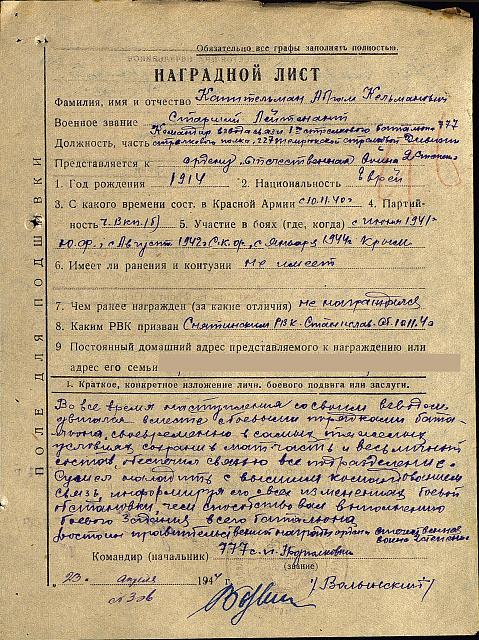 Обязательно все графы заполнять полностью.
НАГРАДНОЙ ЛИСТ
Фамилия, имя и отчество Капительман Кельманович
Военное звание Старший Лейтенант
Командир взвода связи 1го стрелкового батальона 777
Должность, часть стрелкового полка, 227 стрелковой Дивизии
Представляется к ордену "Отечественная война 2 степени"
1. Год рождения 1914 2. Национальность Еврей
3. С какого времени сост. в Красной Армии с 10.11.40г 4. Партий-
ность 5. Участие в боях (где, когда) с июня 1941г
Ю.ф., с Август 1942г С.к.ф., с Января 1944г Крым
6. Имеет ли ранения и контузии не имеет
7. Чем ранее награжден (за какие отличия) не награждался
8. Каким РВК призван Снятинским РВК-Станислав. Об. 10.11.40
9 Постоянный домашний адрес представляемого к награждению или
адрес его семьи
I. Краткое, конкретное изложение личн. боевого подвига или заслуги.
Во все время наступления со своим взводом
двигался вместе с боевыми порядками бата-
льона, своевременно в самых тяжелых
условиях сохранив матчасть и весь личный
состав, обеспечил связью все подразделения.
Сумел наладить с высшим командованием
связь, информируя его о всех изменениях боевой
обстановки, чем способствовал выполнению
боевого задания всего батальона
Достоин правительственной награды ордена отечественная
война 2 степени
Командир (начальник) 777 с.п. Подполковник
(звание)
"23" апреля 1944 г. /Волынский/
ПОЛЕ ДЛЯ ПОДШИВКИ